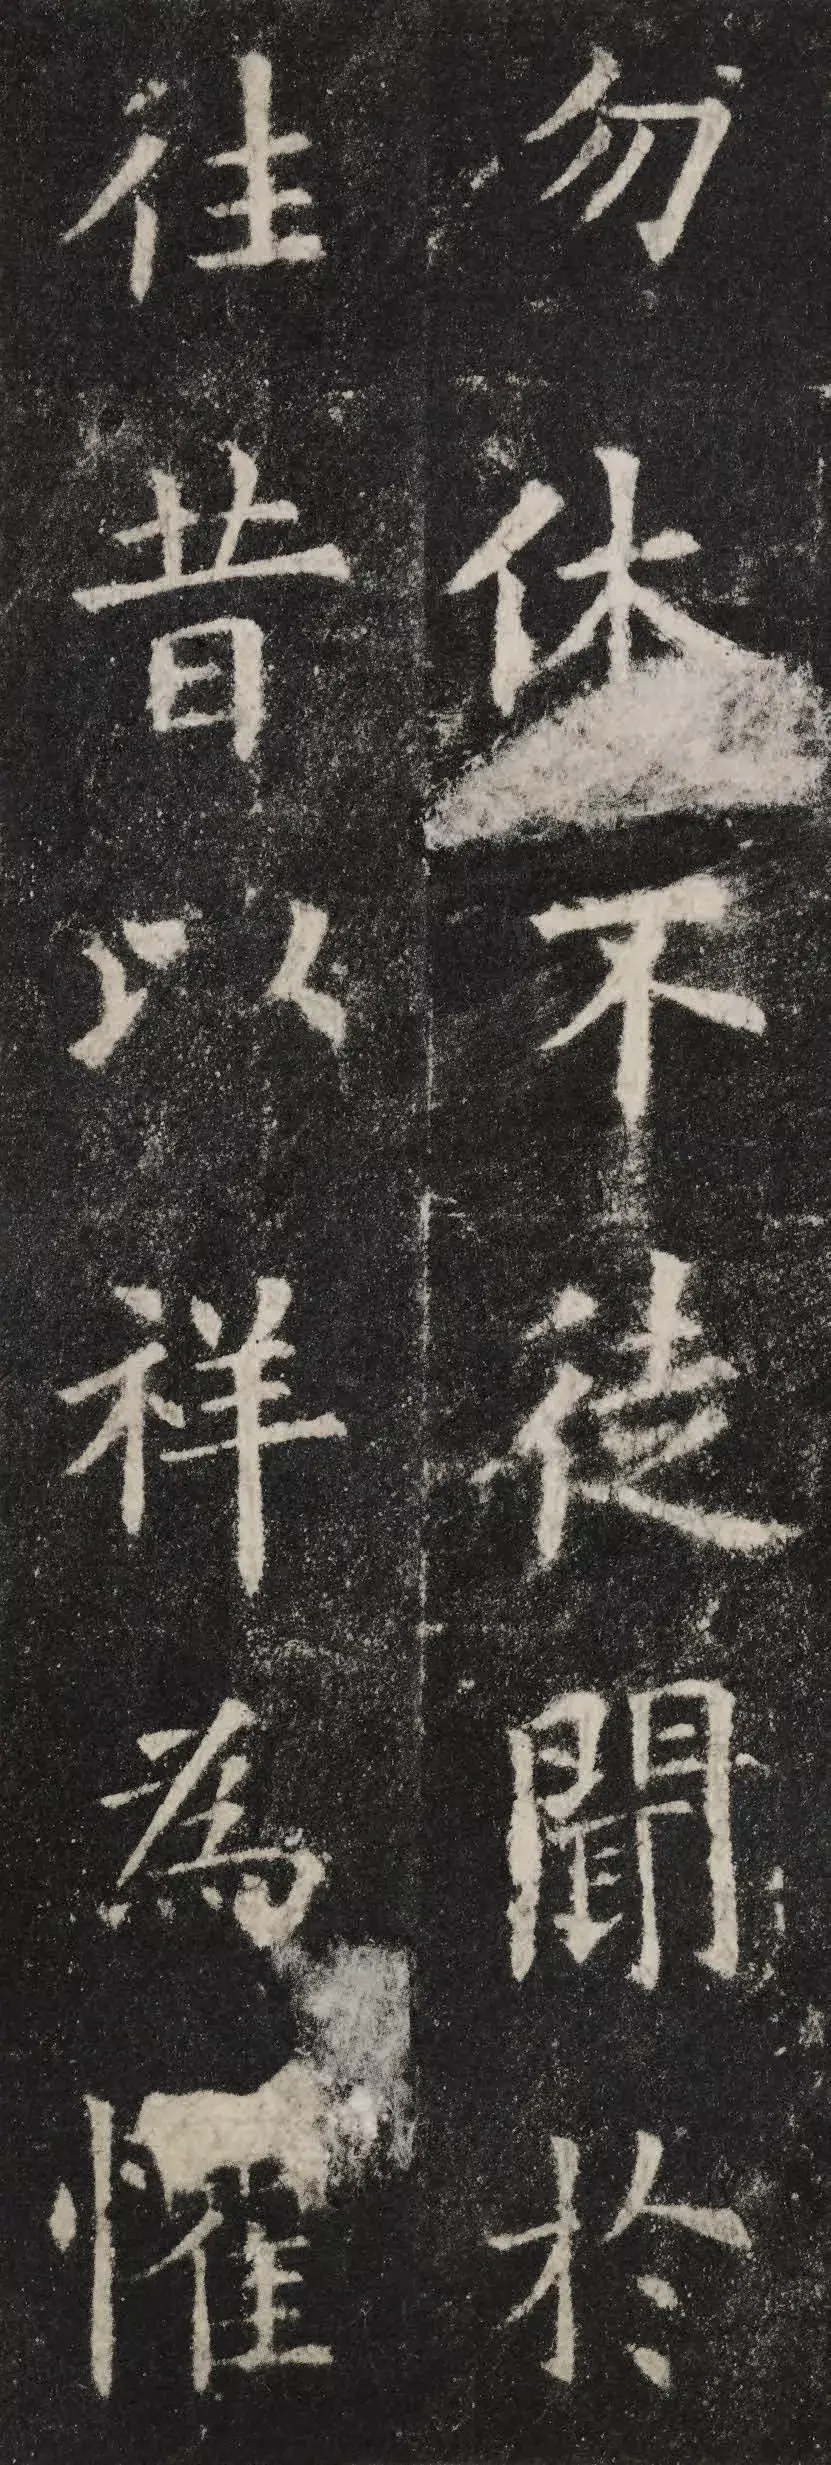 勿休不徒聞於
往昔以祥為懼